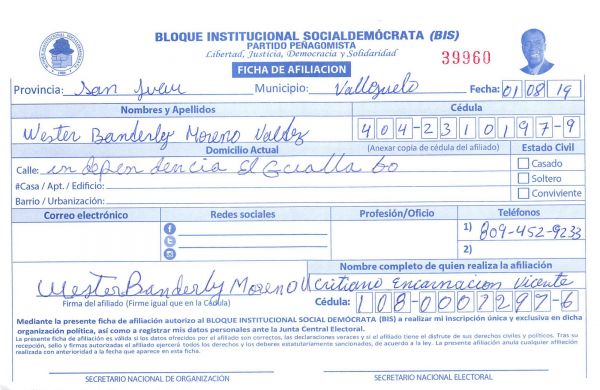 BLOQUE INSTITUCIONAL SOCIALDEMÓCRATA (BIS)
PARTIDO PEÑAGOMISTA
Libertad, Justicia, Democracia y Solidaridad
39960
FICHA DE AFILIACION
Provincia: San Juan Municipio: Vallejuelo Fecha: 01 08 19
Nombres y Apellidos Cédula
Wester Banderly Moreno Valdez 404-2310197-9
Domicilio Actual (Anexar copia de cédula del afiliado) Estado Civil
Calle: independencia El Guallabo Casado
#Casa / Apt. / Edificio: Soltero
Barrio / Urbanización: Conviviente
Correo electrónico Redes sociales Profesión/Oficio Teléfonos
1) 809-452-9233
2)
Nombre completo de quien realiza la afiliación
Wester Banderly Moreno V Critiano Encarnacion Vicente
Firma del afiliado (Firme igual que en la Cédula) Cédula: 108-0007297-6
Mediante la presente ficha de afiliación autorizo al BLOQUE INSTITUCIONAL SOCIAL DEMÓCRATA (BIS) a realizar mi inscripción única y exclusiva en dicha
organización política, así como a registrar mis datos personales ante la Junta Central Electoral.
La presente ficha de afiliación es válida si los datos ofrecidos por el afiliado son correctos, las declaraciones veraces y si el afiliado tiene el disfrute de sus derechos civiles y políticos. Tras su
recepción, sello y firmas autorizadas el afiliado ejercerá todos los derechos y los deberes estatutariamente sancionados, de acuerdo a la ley. La presente afiliación anula cualquier afiliación
realizada con anterioridad a la fecha que aparece en esta ficha.
SECRETARIO NACIONAL DE ORGANIZACIÓN SECRETARIO NACIONAL ELECTORAL